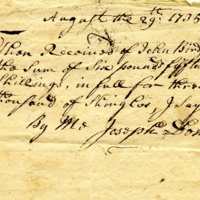 August the 29th. 1735
Then Received of John Bird
the Sum of Six pounds fiftee
Shillings, in full for three
thousand of Shingles, I say
By Me Joseph